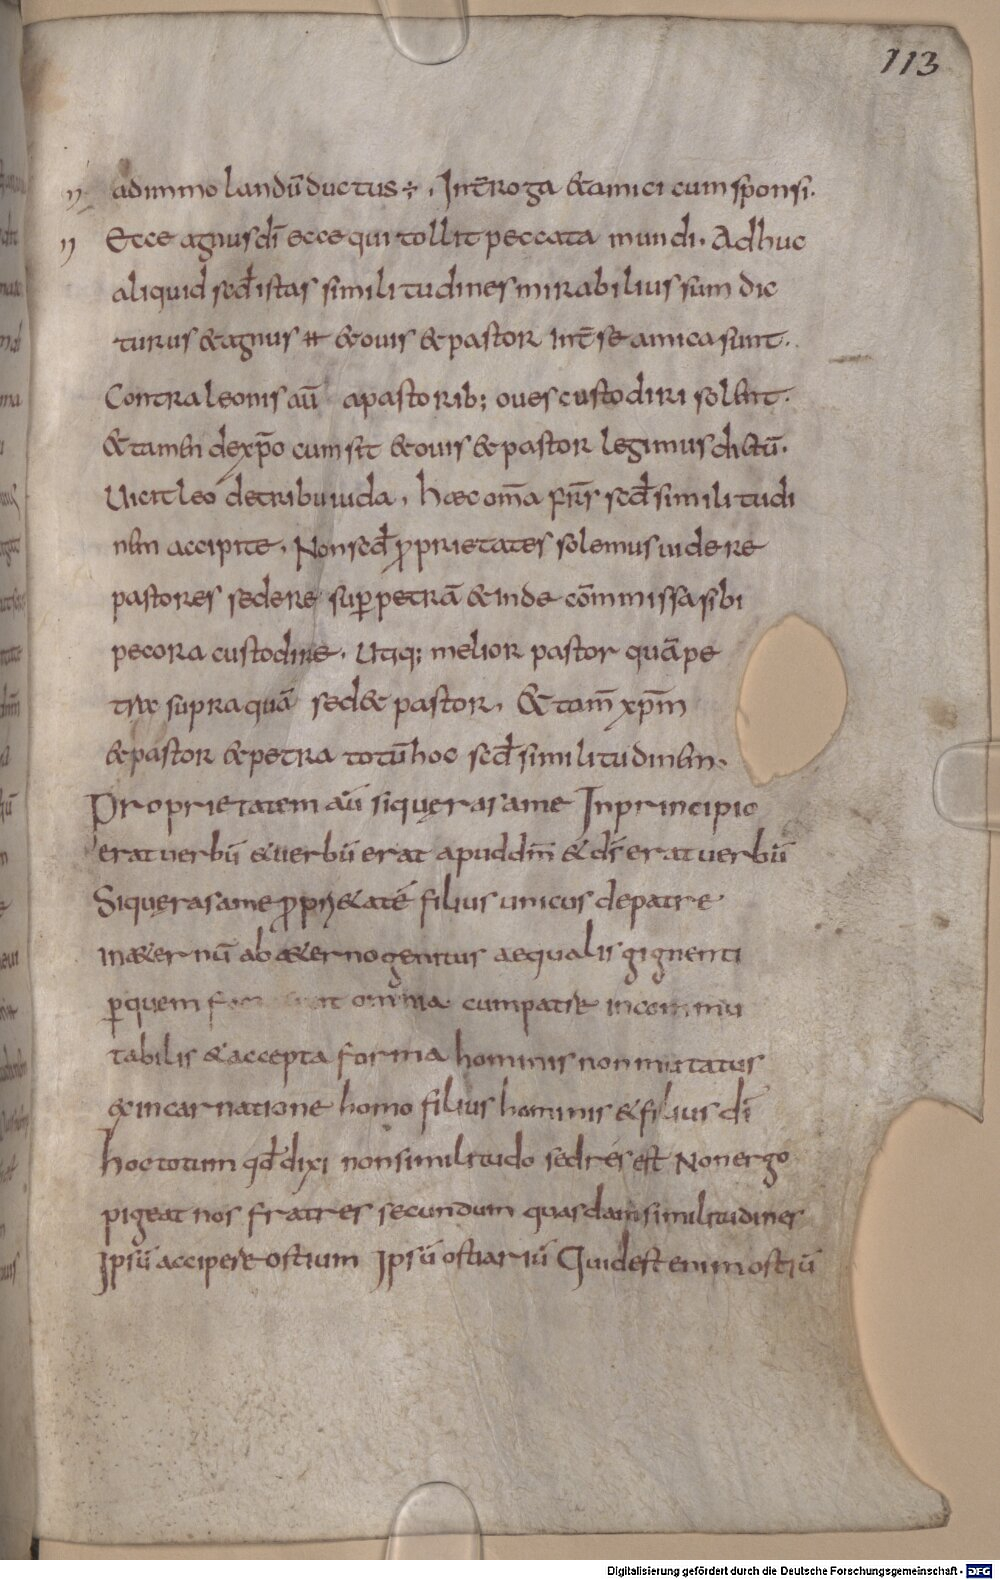 113
ad immolandū ductus ÷ . Int̄rroga & amici cum sponsi.
Ecce agnus dī ecce qui tollit peccata mundi. Adhuc
aliquid scd̄ istas similitudines mirabilius sum dic
turus & agnus & ouis & pastor int̄ se amica sunt.
Contra leonis aū a pastorib; oues custodiri solent.
& tamen de xp̄o cum sit & ouis & pastor legimus dictū.
Uicit leo de tribu iuda. hæc om̄a fr̄s scd̄ similitudi
nem accipite. Non scd̄ ꝓprietates solemus uidere
pastores sedere sup̱ petrā & inde cōmmissa sibi
pecora custodire. Utiq; melior pastor quā pe
træ supra quā sed& pastor. & tam̄ xp̄m
& pastor & petra totū hoc scd̄ similitudinem.
Proprietatem aū si quęras a me In principio
erat uerbū & uerbū erat apud dm̄ & ds̄ erat uerbū
Si quęras a me ꝓpri&atē filius unicus de patre
in æ&ernū ab æ&erno genitus aequalis gignenti
ꝑ quem omnia cum patre incommu
tabilis & accepta forma hominis non mutatus
ex incarnatione homo filius hominis & filius dī
hoc totum qd̄ dixi non similitudo sed rés est Non ergo
pigeat nos fratres secundum quasdam similitudines
Ipsū accipere ostium Ipsū ostiariū Quid est enim ostiū
Digitalisierung gefördert durch die Deutsche Forschungsgemeinschaft - DFG